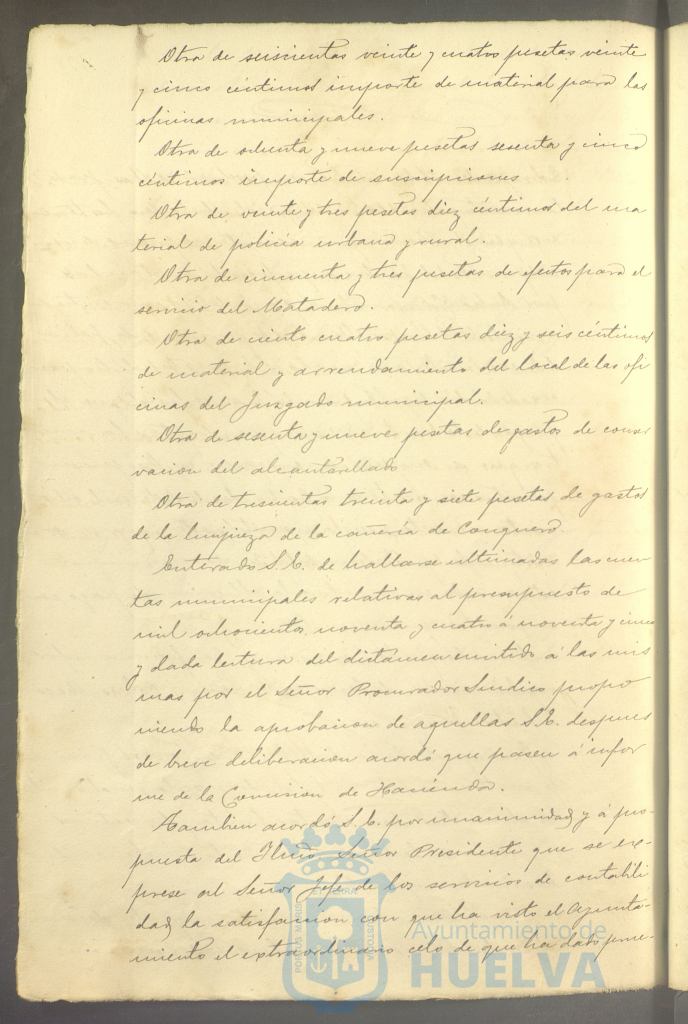 Otra de seiscientas veinte y cuatro pesetas veinte
y cinco céntimos importe de material para las
oficinas municipales.
Otra de ochenta y nueve pesetas sesenta y cinco
céntimos importe de suscripciones.
Otra de veinte y tres pesetas diez céntimos del ma
terial de policia urbana y rural.
Otra de cincuenta y tres pesetas de efectos para el
servicio del Matadero.
Otra de ciento cuatro pesetas diez y seis céntimos
de material y arrendamiento del local de las ofi
cinas del Juzgado municipal.
Otra de sesenta y nueve pesetas de gastos de conser
vacion del alcantarillado
Otra de trescientas treinta y siete pesetas de gastos
de la limpieza de la cañeria de Conquero.
Enterado S. E. de hallarse ultimadas las cuen
tas municipales relativas al presupuesto de
mil ochocientos noventa y cuatro á noventa y cinco
y dada lectura del dictamen emitido á las mis
mas por el Señor Procurador Sindico propo
niendo la aprobacion de aquellas S. E. despues
de breve deliberacion acordó que pasen á infor
me de la Comision de Hacienda.
Tambien acordó S. E. por unanimidad y á pro-
puesta del Iltmo. Señor Presidente que se ex-
prese al Señor Jefe de los servicios de contabili
dad, la satisfaccion con que ha visto el Ayunta-
miento el extraordinario celo de que ha dado prue-
PORTUS MARIS
ET TERRÆ
CUSTODIA
Ayuntamiento de
HUELVA